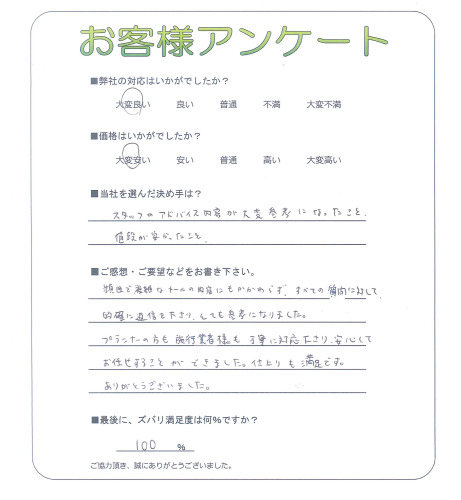 お客様アンケート
■弊社の対応はいかがでしたか？
大変良い 良い 普通 不満 大変不満
■価格はいかがでしたか？
大変安い 安い 普通 高い 大変高い
■当社を選んだ決め手は？
スタッフのアドバイス内容が大変参考になったことと、
値段が安かったこと。
■ご感想・ご要望などをお書き下さい。
頻回で複雑なメールの内容にもかかわらず、すべての質問に対して、
的確に返信を下さり、とても参考になりました。
プランナーの方も施行業者様も丁寧に対応下さり、安心して
お任せすることができました。仕上りも満足です。
ありがとうございました。
■最後に、ズバリ満足度は何％ですか？
100 ％
ご協力頂き、誠にありがとうございました。